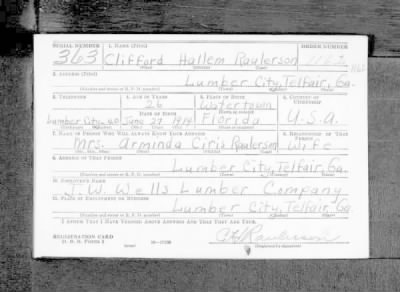 SERIAL NUMBER 1. NAME (Print) ORDER NUMBER
363 Clifford Hallem Raulerson 1163
(First) (Middle) (Last)
2. ADDRESS (Print)
Lumber City, Telfair, Ga.
(Number and street or R. F. D. number) (Town) (County) (State)
3. TELEPHONE 4. AGE IN YEARS 5. PLACE OF BIRTH 6. COUNTRY OF CITIZENSHIP
26 Watertown
Lumber City June 27, 1914 Florida U.S.A.
7. NAME OF PERSON WHO WILL ALWAYS KNOW YOUR ADDRESS 8. RELATIONSHIP OF THAT PERSON
Mrs. Arminda Ciris Raulerson Wife
(Mr., Mrs., Miss) (First) (Middle) (Last)
9. ADDRESS OF THAT PERSON
Lumber City, Telfair, Ga.
(Number and street or R. F. D. number) (Town) (County) (State)
10. EMPLOYER'S NAME
J. W. Wells Lumber Company
11. PLACE OF EMPLOYMENT OR BUSINESS
Lumber City, Telfair, Ga
(Number and street or R. F. D. number) (Town) (County) (State)
I AFFIRM THAT I HAVE VERIFIED ABOVE ANSWERS AND THAT THEY ARE TRUE.
REGISTRATION CARD
D. S. S. FORM 1 (over) 16—17105 (Registrant's signature)